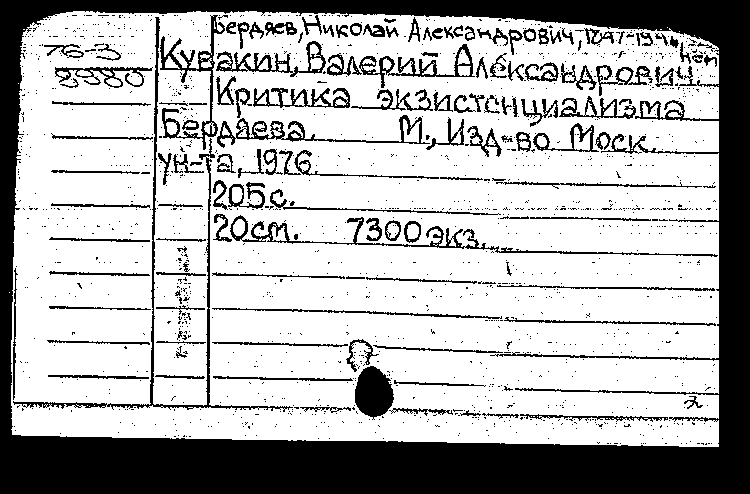 Бердяев, Николай Александрович,
76-3
Кувакин, Валерий Александрович.
8980
Критика экзистенциализма
Бердяева. М., Изд-во Моск.
ун-та, 1976.
205 с.
20 см. 7300 экз.